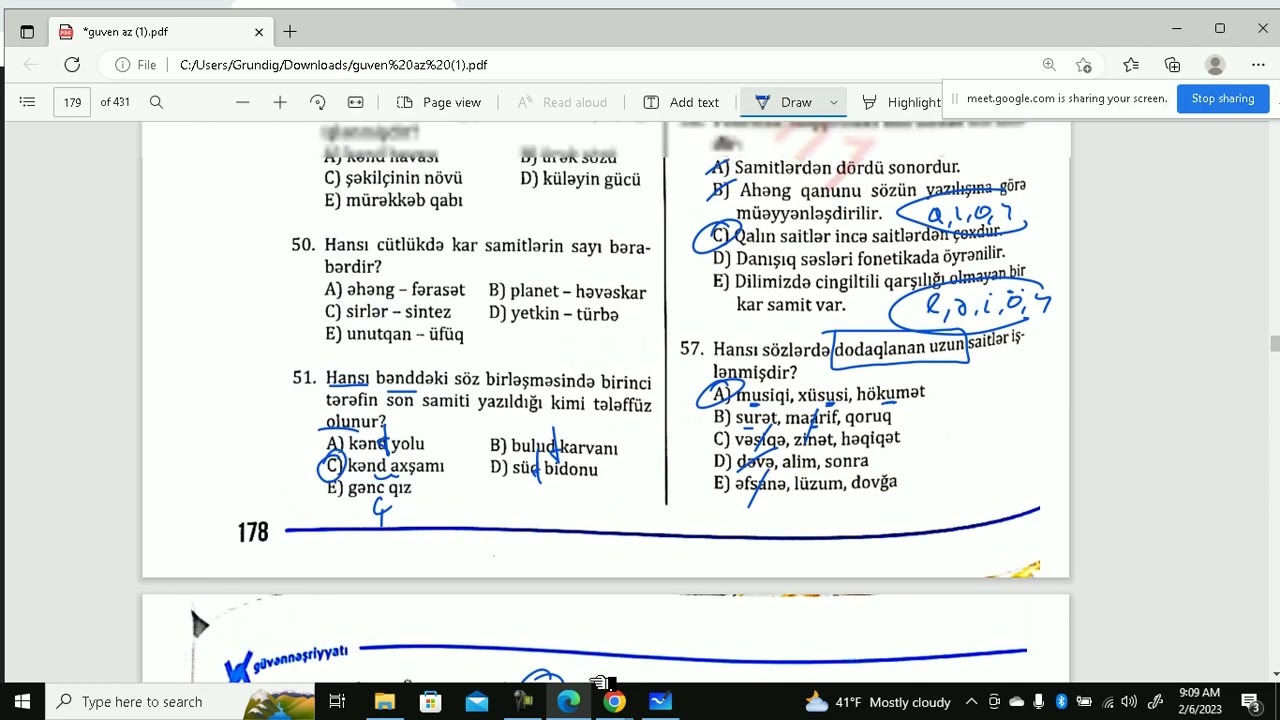 *guven az (1).pdf
File C:/Users/Grundig/Downloads/guven%20az%20(1).pdf
179 of 431 Page view Read aloud Add text Draw Highlight
meet.google.com is sharing your screen. Stop sharing
A) kənd havası B) ürək sözü
C) şəkilçinin növü D) küləyin gücü
E) mürəkkəb qabı
50. Hansı cütlükdə kar samitlərin sayı bəra-
bərdir?
A) əhəng – fərasət B) planet – həvəskar
C) sirlər – sintez D) yetkin – türbə
E) unutqan – üfüq
51. Hansı bənddəki söz birləşməsində birinci
tərəfin son samiti yazıldığı kimi tələffüz
olunur?
A) kənd yolu B) bulud karvanı
C) kənd axşamı D) süd bidonu
E) gənc qız
ç
178
A) Samitlərdən dördü sonordur.
B) Ahəng qanunu sözün yazılışına görə
müəyyənləşdirilir.
C) Qalın saitlər incə saitlərdən çoxdur.
D) Danışıq səsləri fonetikada öyrənilir.
E) Dilimizdə cingiltili qarşılığı olmayan bir
kar samit var.
57. Hansı sözlərdə dodaqlanan uzun saitlər iş-
lənmişdir?
A) musiqi, xüsusi, hökumət
B) surət, maarif, qoruq
C) vəsiqə, zinət, həqiqət
D) dəvə, alim, sonra
E) əfsanə, lüzum, dovğa
güvənnəşriyyatı
Type here to search 41°F Mostly cloudy 9:09 AM
2/6/2023 3